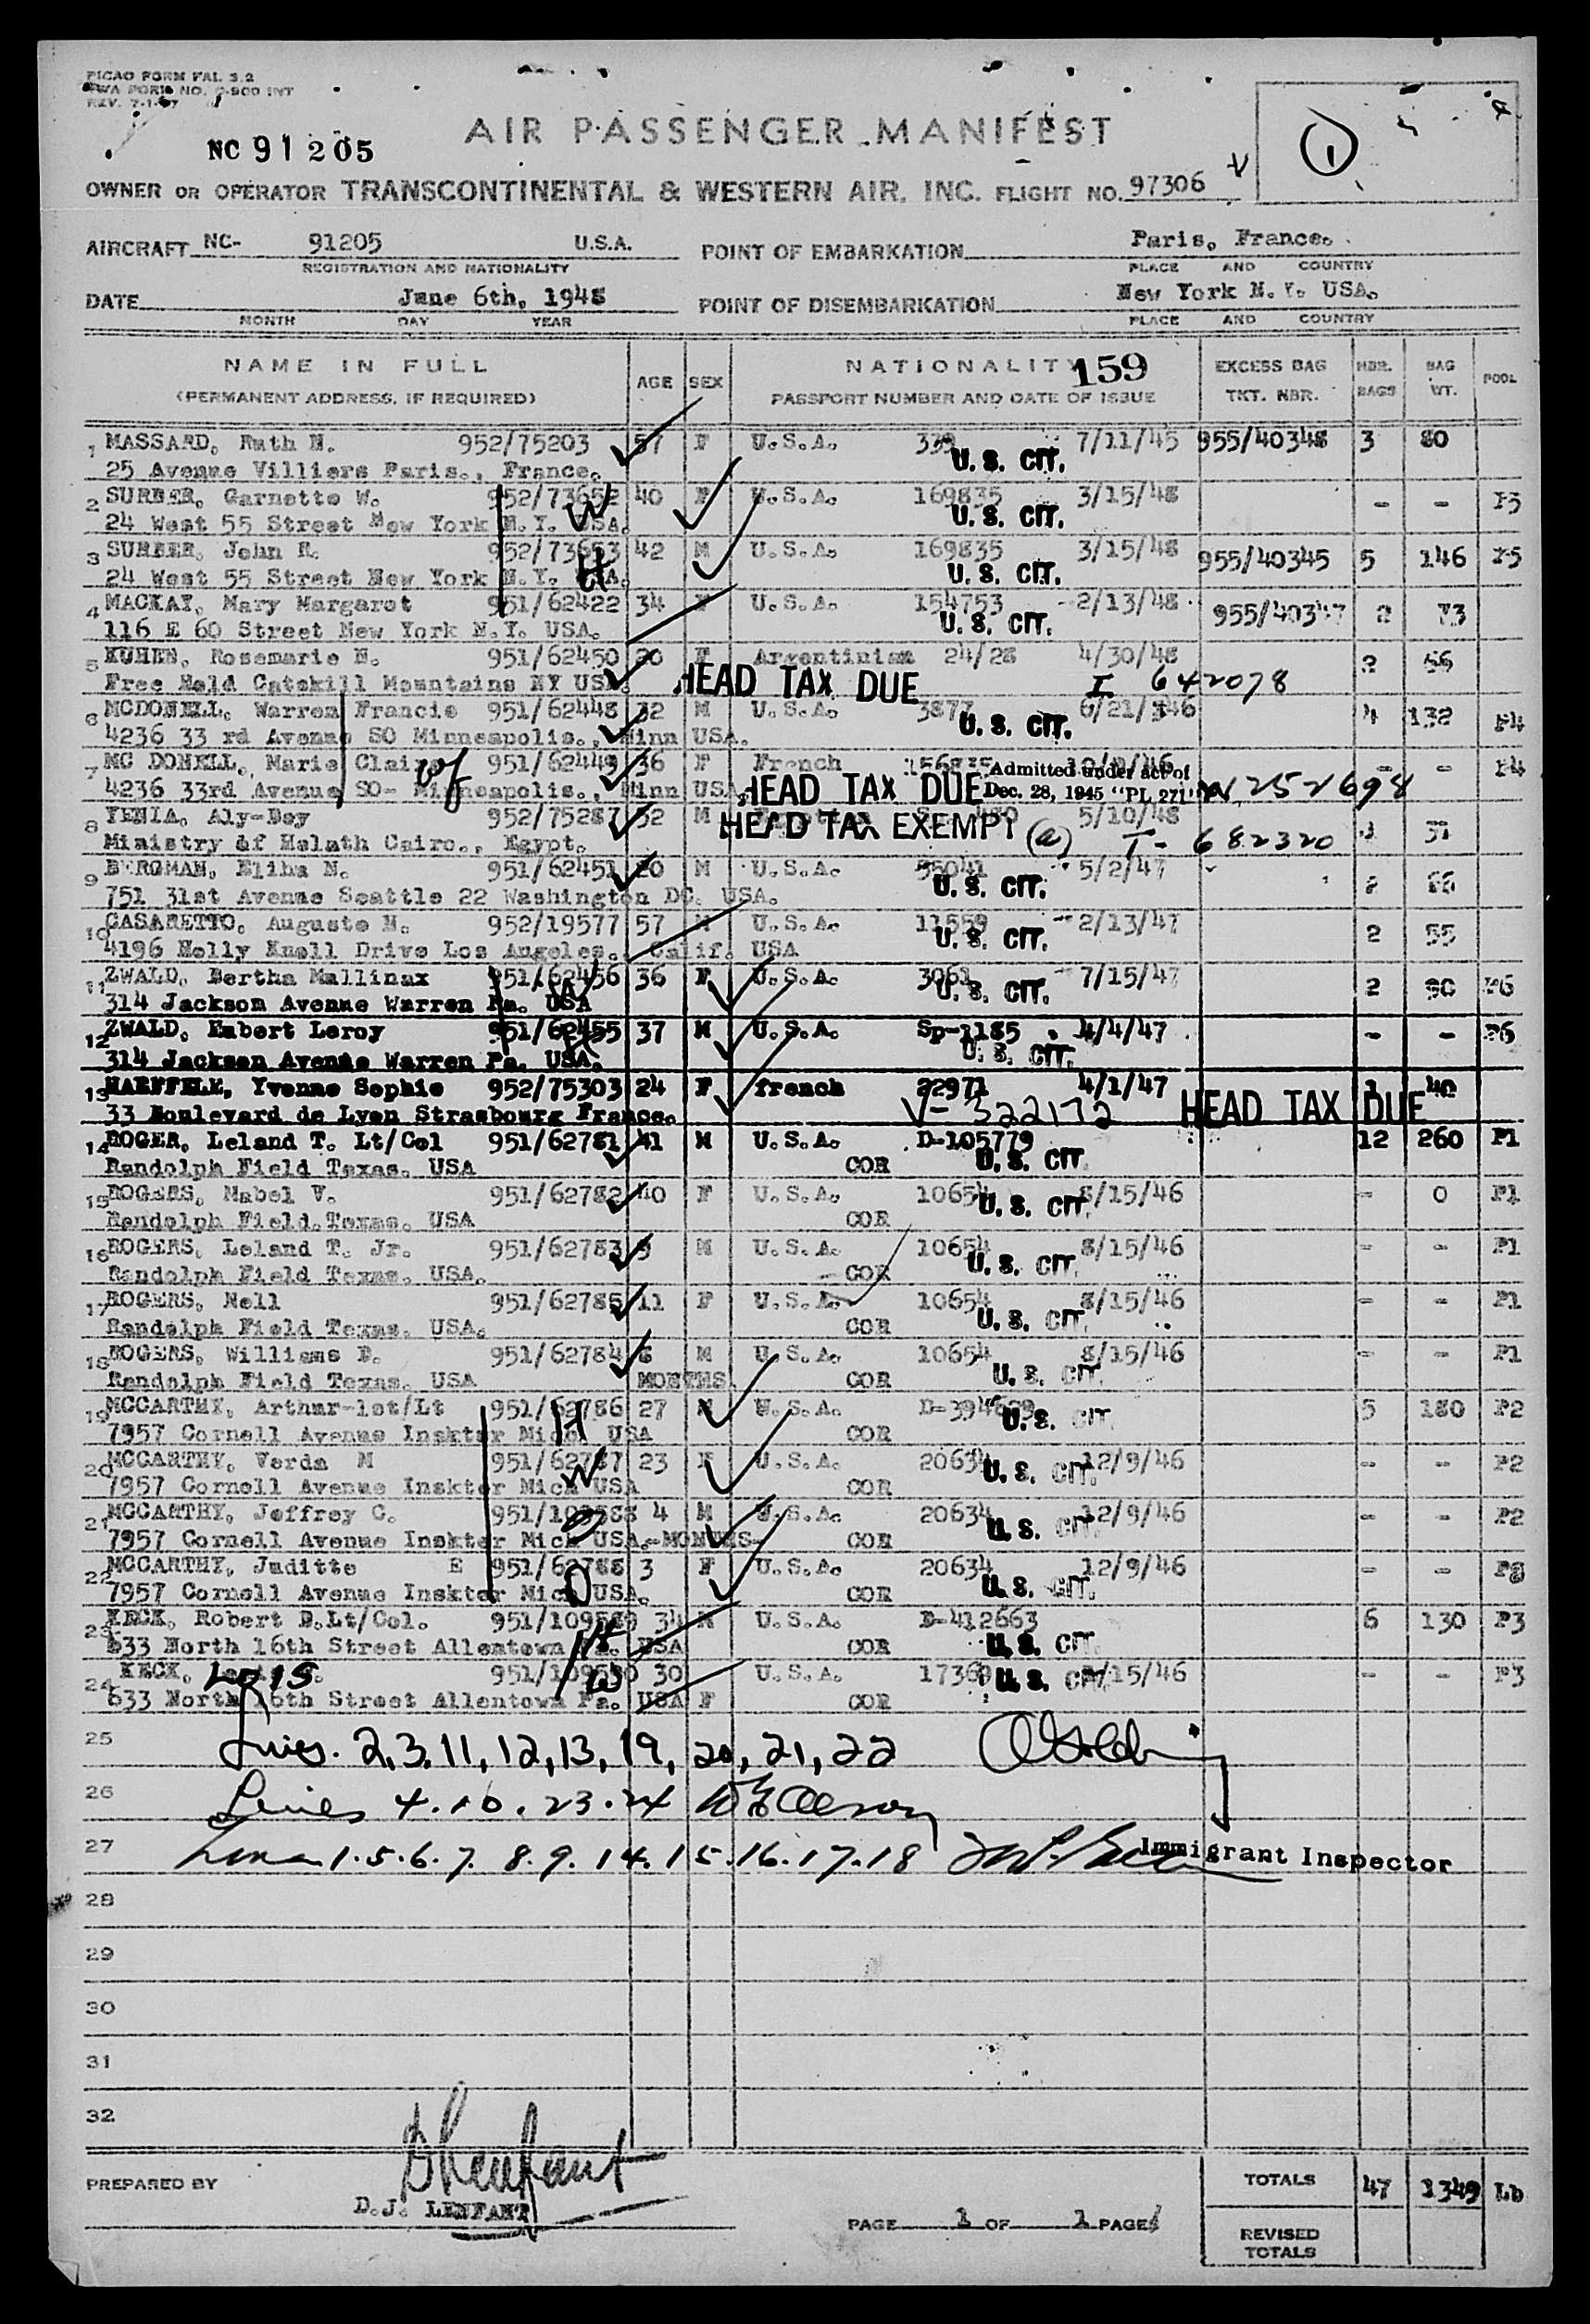 PICAO FORM FAL 3.2
TWA FORM NO. INT
REV. 7-1-47
AIR PASSENGER MANIFEST
NC 91205
OWNER OR OPERATOR TRANSCONTINENTAL & WESTERN AIR, INC. FLIGHT NO. 97306
AIRCRAFT NC- 91205 U.S.A. POINT OF EMBARKATION Paris, France.
REGISTRATION AND NATIONALITY PLACE AND COUNTRY
DATE June 6th, 1948 POINT OF DISEMBARKATION New York N.Y. USA.
MONTH DAY YEAR PLACE AND COUNTRY
NAME IN FULL AGE SEX NATIONALITY 159 EXCESS BAG NBR. BAG POOL
(PERMANENT ADDRESS, IF REQUIRED) PASSPORT NUMBER AND DATE OF ISSUE TKT. NBR. BAGS WT.
1 MASSARD, Ruth N. 952/75203 57 F U.S.A. 7/11/45 955/40348 3 80
25 Avenue Villiers Paris., France. U. S. CIT.
2 SURBER, Garnette W. 952/73652 40 F U.S.A. 169835 3/15/48 - - P5
24 West 55 Street New York N.Y. USA. W U. S. CIT.
3 SURBER, John R. 952/73653 42 M U.S.A. 169835 3/15/48 955/40345 5 146 P5
24 West 55 Street New York N.Y. USA. H U. S. CIT.
4 MACKAY, Mary Margaret 951/62422 34 F U.S.A. 154753 2/13/48 955/40347 2 73
116 E 60 Street New York N.Y. USA. U. S. CIT.
5 KUHEN, Rosemarie N. 951/62450 20 F Argentinian 24/28 4/30/48 2 56
Free Hold Catskill Mountains NY USA. HEAD TAX DUE I 642078
6 MCDONELL, Warren Francis 951/62448 32 M U.S.A. 3877 6/21/46 4 132 P4
4236 33 rd Avenue SO Minneapolis., Minn USA. U. S. CIT.
7 MC DONELL, Marie Claire 951/62449 36 F French - - P4
4236 33rd Avenue SO- Minneapolis., Minn USA. wf HEAD TAX DUE Admitted under act of Dec. 28, 1945 "PL 271"
8 YEHIA, Aly-Bey 952/75287 52 M 5/10/48
Ministry of Halath Cairo., Egypt. HEAD TAX EXEMPT (a) T- 682320
9 BERGMAN, Elihu N. 951/62451 20 M U.S.A. 55041 5/2/47 2 66
751 31st Avenue Seattle 22 Washington DC. USA. U. S. CIT.
10 CASARETTO, Augusto M. 952/19577 57 M U.S.A. 11559 2/13/47 2 55
4196 Holly Knoll Drive Los Angeles., Calif. USA U. S. CIT.
11 ZWALD, Bertha Mallinax 951/62456 36 F U.S.A. 3063 7/15/47 2 90 P6
314 Jackson Avenue Warren Pa. USA W U. S. CIT.
12 ZWALD, Hubert Leroy 951/62455 37 M U.S.A. Sp-1185 4/4/47 - - P6
314 Jackson Avenue Warren Pa. USA. H U. S. CIT.
13 HAEFFELE, Yvonne Sophie 952/75303 24 F french 22971 4/1/47 1 40
33 Boulevard de Lyon Strasbourg France. V- 322172 HEAD TAX DUE
14 ROGER, Leland T. Lt/Col 951/62781 41 M U.S.A. D-105779 12 260 P1
Randolph Field Texas. USA COR U. S. CIT.
15 ROGERS, Mabel V. 951/62782 40 F U.S.A. 10654 8/15/46 - 0 P1
Randolph Field.Texas. USA COR U. S. CIT.
16 ROGERS, Leland T. Jr. 951/62783 9 M U.S.A. 10654 8/15/46 - - P1
Randolph Field Texas. USA. COR U. S. CIT.
17 ROGERS, Nell 951/62785 11 F U.S.A. 10654 8/15/46 - - P1
Randolph Field Texas. USA. COR U. S. CIT.
18 ROGERS, Williams D. 951/62784 6 M U.S.A. 10654 8/15/46 - - P1
Randolph Field Texas. USA MONTHS COR U. S. CIT.
19 MCCARTHY, Arthur-1st/Lt 951/62786 27 M U.S.A. 5 180 P2
7957 Cornell Avenue Inskter Mich USA H COR U. S. CIT.
20 MCCARTHY, Verda M 951/62787 23 F U.S.A. 20634 12/9/46 - - P2
7957 Cornell Avenue Inskter Mich USA W COR U. S. CIT.
21 MCCARTHY, Jeffrey C. 951/109588 4 M U.S.A. 20634 12/9/46 - - P2
7957 Cornell Avenue Inskter Mich USA.-MONTHS- S COR U. S. CIT.
22 MCCARTHY, Juditte E 951/62788 3 F U.S.A. 20634 12/9/46 - - P2
7957 Cornell Avenue Inskter Mich USA. D COR U. S. CIT.
23 KECK, Robert D.Lt/Col. 951/109589 34 M U.S.A. D-412663 6 130 P3
633 North 16th Street Allentown Pa. USA H COR U. S. CIT.
24 KECK, Lois 951/109590 30 U.S.A. U. S. CIT. /15/46 - - P3
633 North 16th Street Allentown Pa. USA F W COR
25 Lines. 2,3,11,12,13,19,20,21,22
26 Lines 4.10.23.24
27 Lines 1.5.6.7. 8.9.14.15.16.17.18 Immigrant Inspector
28
29
30
31
32
PREPARED BY
D.J. LENFANT
PAGE 1 OF 1 PAGES
TOTALS 47 1349 Lb
REVISED TOTALS